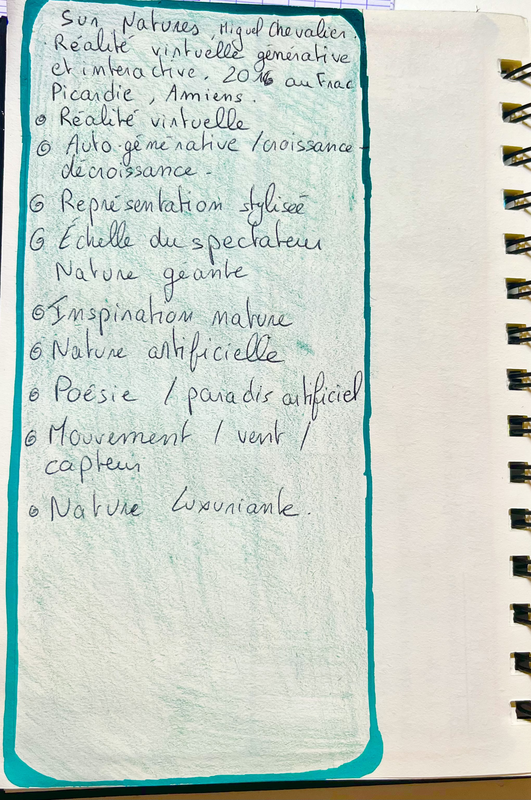 Sur Natures, Miguel Chevalier
Réalité virtuelle générative
et interactive. 2016 au Frac
Picardie, Amiens.
Réalité virtuelle
Auto-générative / croissance -
décroissance -
Représentation stylisée
Échelle du spectateur
Nature géante
Inspiration nature
Nature artificielle
Poésie / paradis artificiel
Mouvement / vent /
capteur
Nature luxuriante.